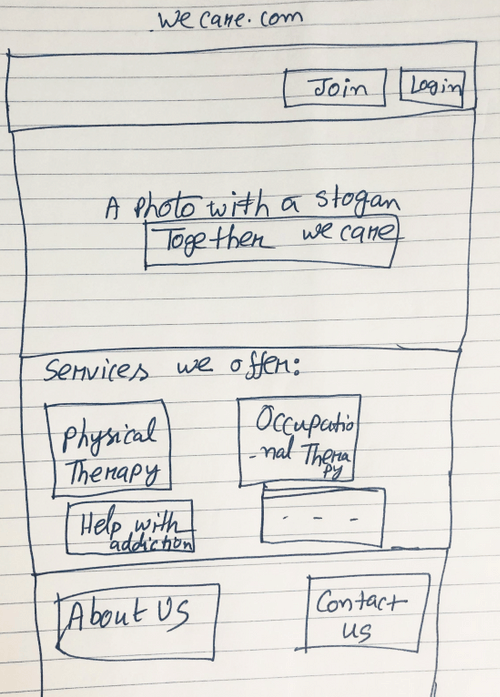 we care.com
Join Login
A photo with a slogan
Together we care
Services we offer:
Physical
Therapy
Occupatio
-nal Thera
py
Help with
addiction
- - -
About US
Contact
us